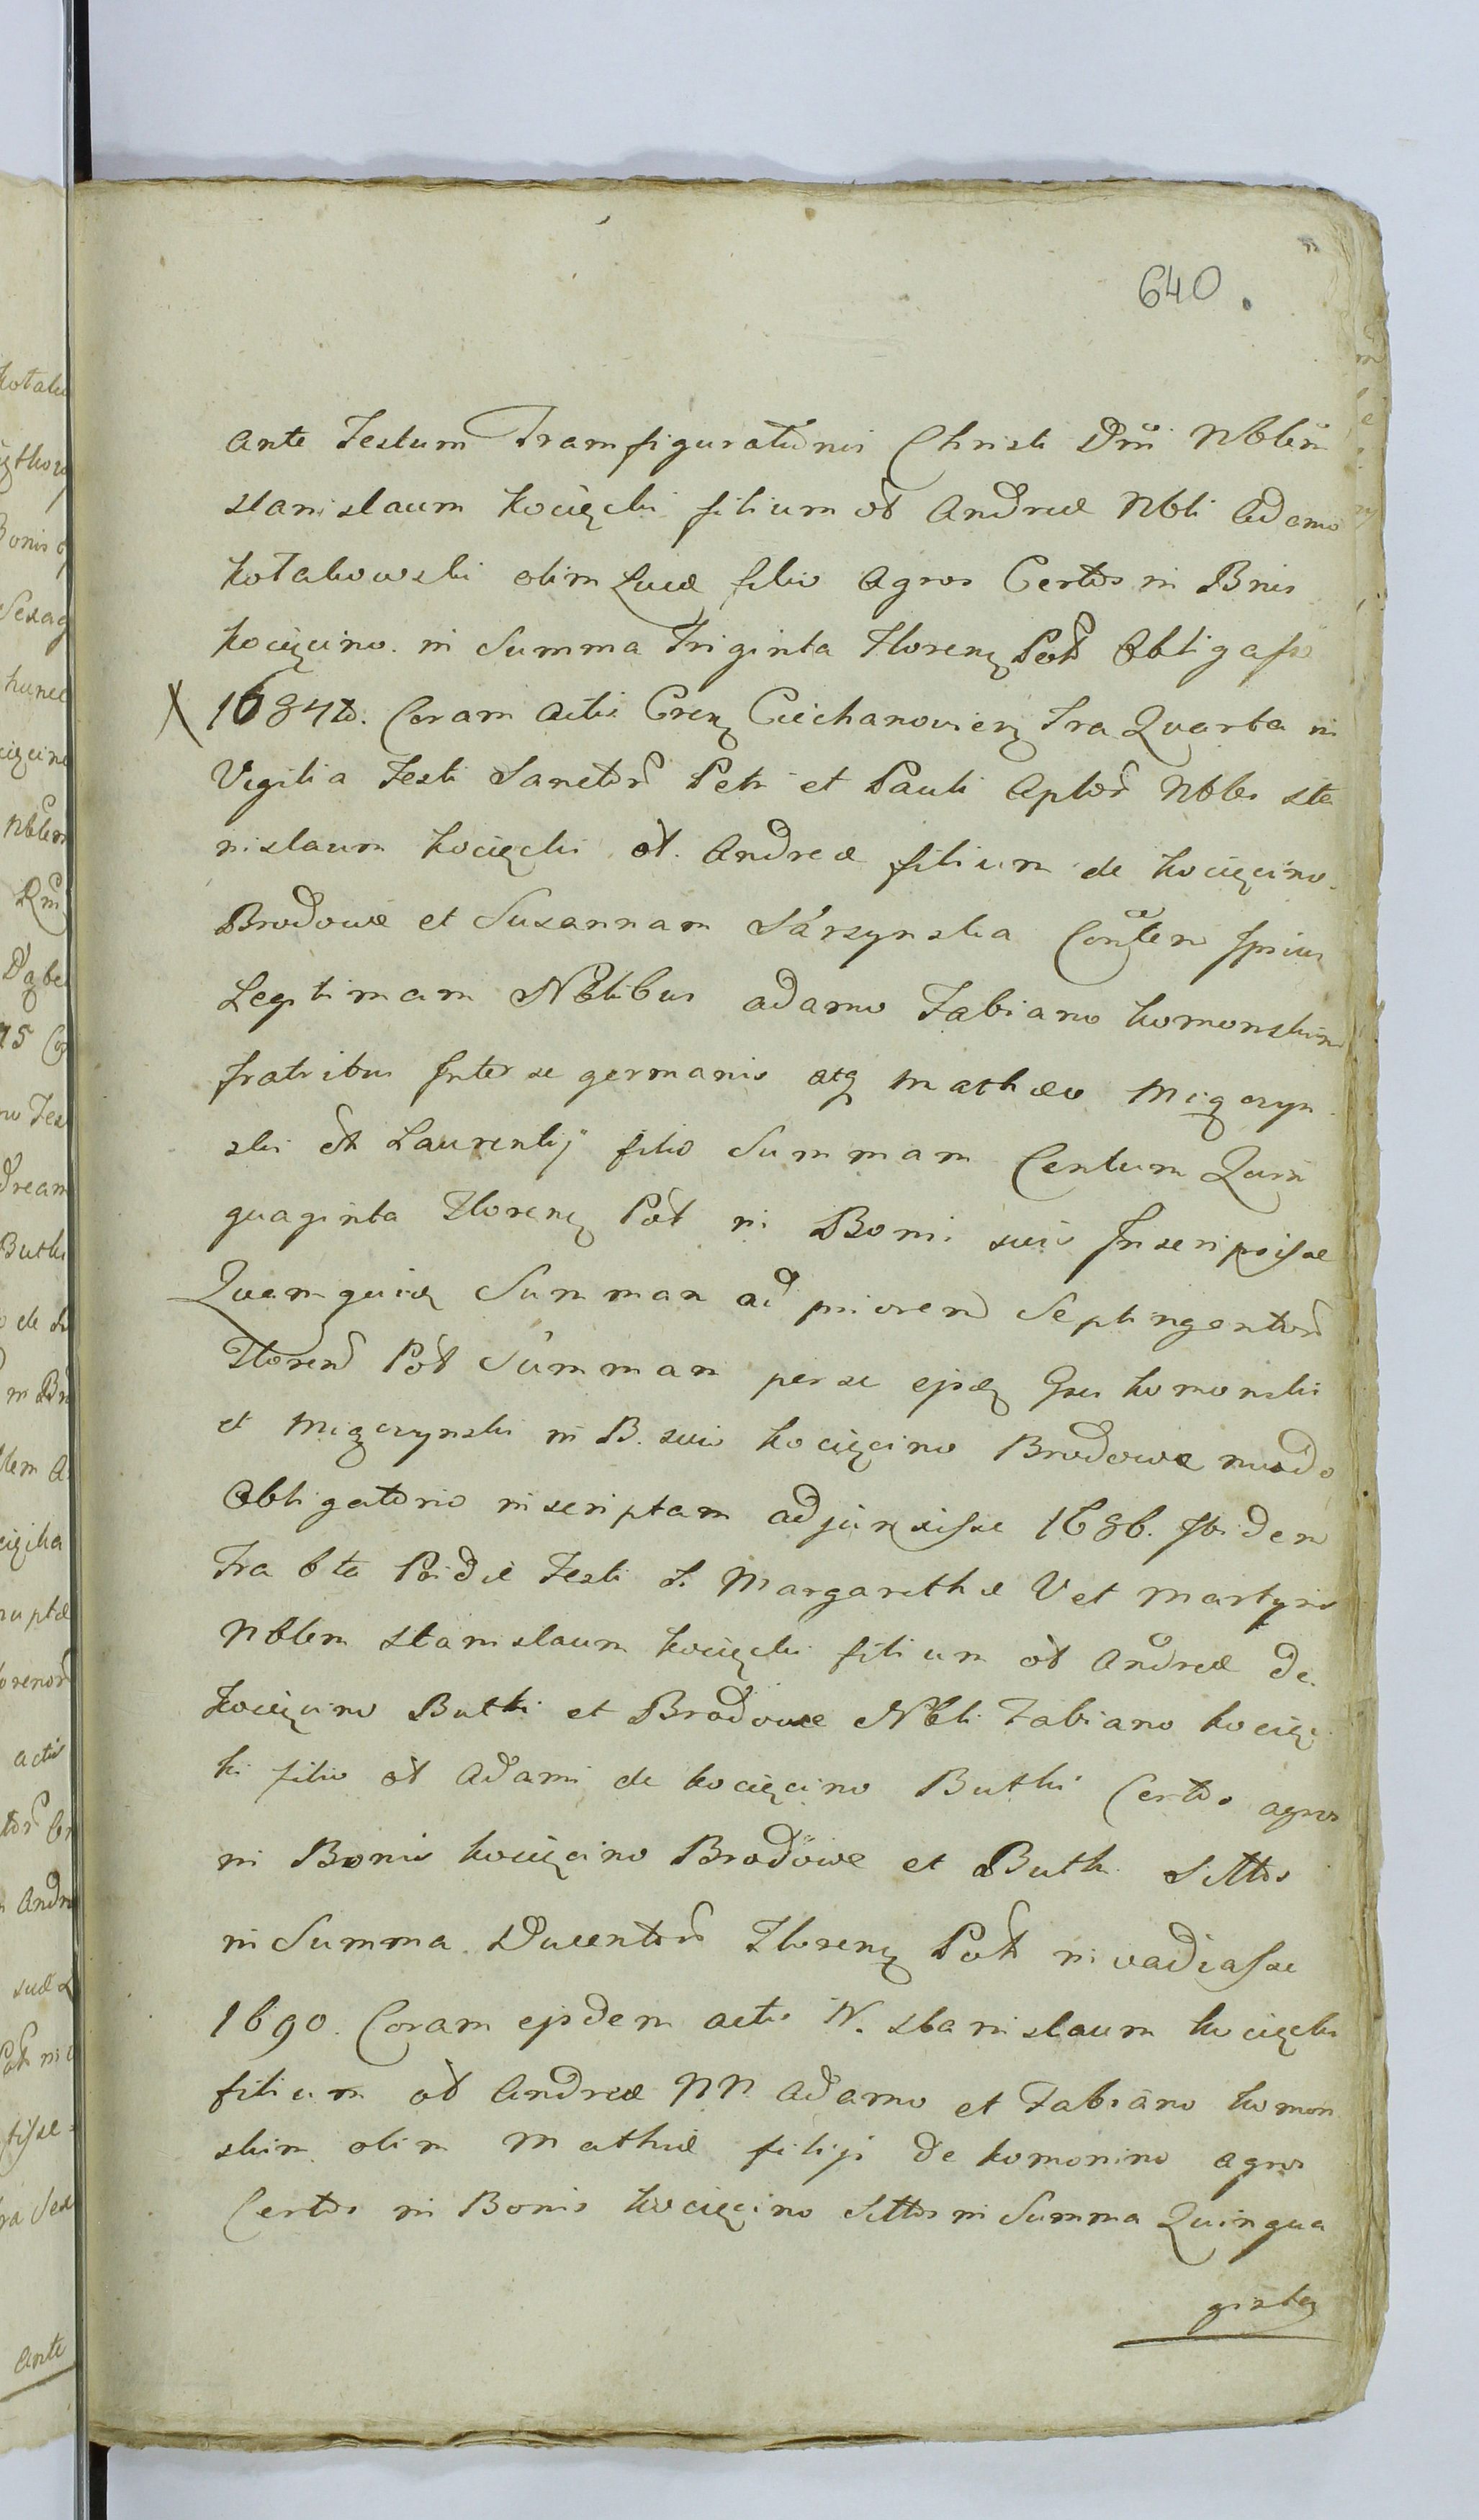 640.
ante Festum Transfigurationis Christi Dni Nblem
Stanislaum Kocięcki filium ot Andreæ Nbli Adamo
Kołakowski olim Lucæ filio Agros Certos in Bnis
Kocięcino in Summa Triginta Floren Pol Obligasse
1684to. Coram Actis Cren Ciechanovien Fra Quarta in
Vigilia Festi Sanctor Petri et Pauli Aplor Nbles Sta
nislaum Kocięcki ot. Andreæ filium de Kocięcino
Brodowæ et Susannam Conjtem Ipsius
Legitimam Nblibus Adamo Fabiano Komonskim
fratribus Inter se germanis atq Mathæo Miączyn
ski ot Laurentij filio Summam Centum Quin
quaginta Floren Pol in Bonis suis Inscripsisse
Quamquid Summam ad priorem Septingentor
Floren Pol Summam per se Komonski
et Miączynski in B. suis Kocięcino Brodowæ modo
Obligatorio inscriptam adjunxisse 1686. Ibidem
Fra 6ta Pridie Festi S. Margarethæ V et Martyris
Nblem Stanislaum Kocięcki filium ot Andreæ de
Kocięcino Butki et Brodowæ Nbli Fabiano Kocięc
ki filio ot Adami de Kocięcino Butki Certos agros
in Bonis Kocięcino Brodowæ et Butki Sittos
in Summa Ducentor Floren Pol invadiasse
1690. Coram ejsdem actis N. Stanislaum Kocięcki
filium ot Andreæ NN. Adamo et Fabiano Komon
skim olim Mathiæ filiji de Komonino agros
Certos in Bonis Kocięcino Sittos in Summa Quinqua
ginta